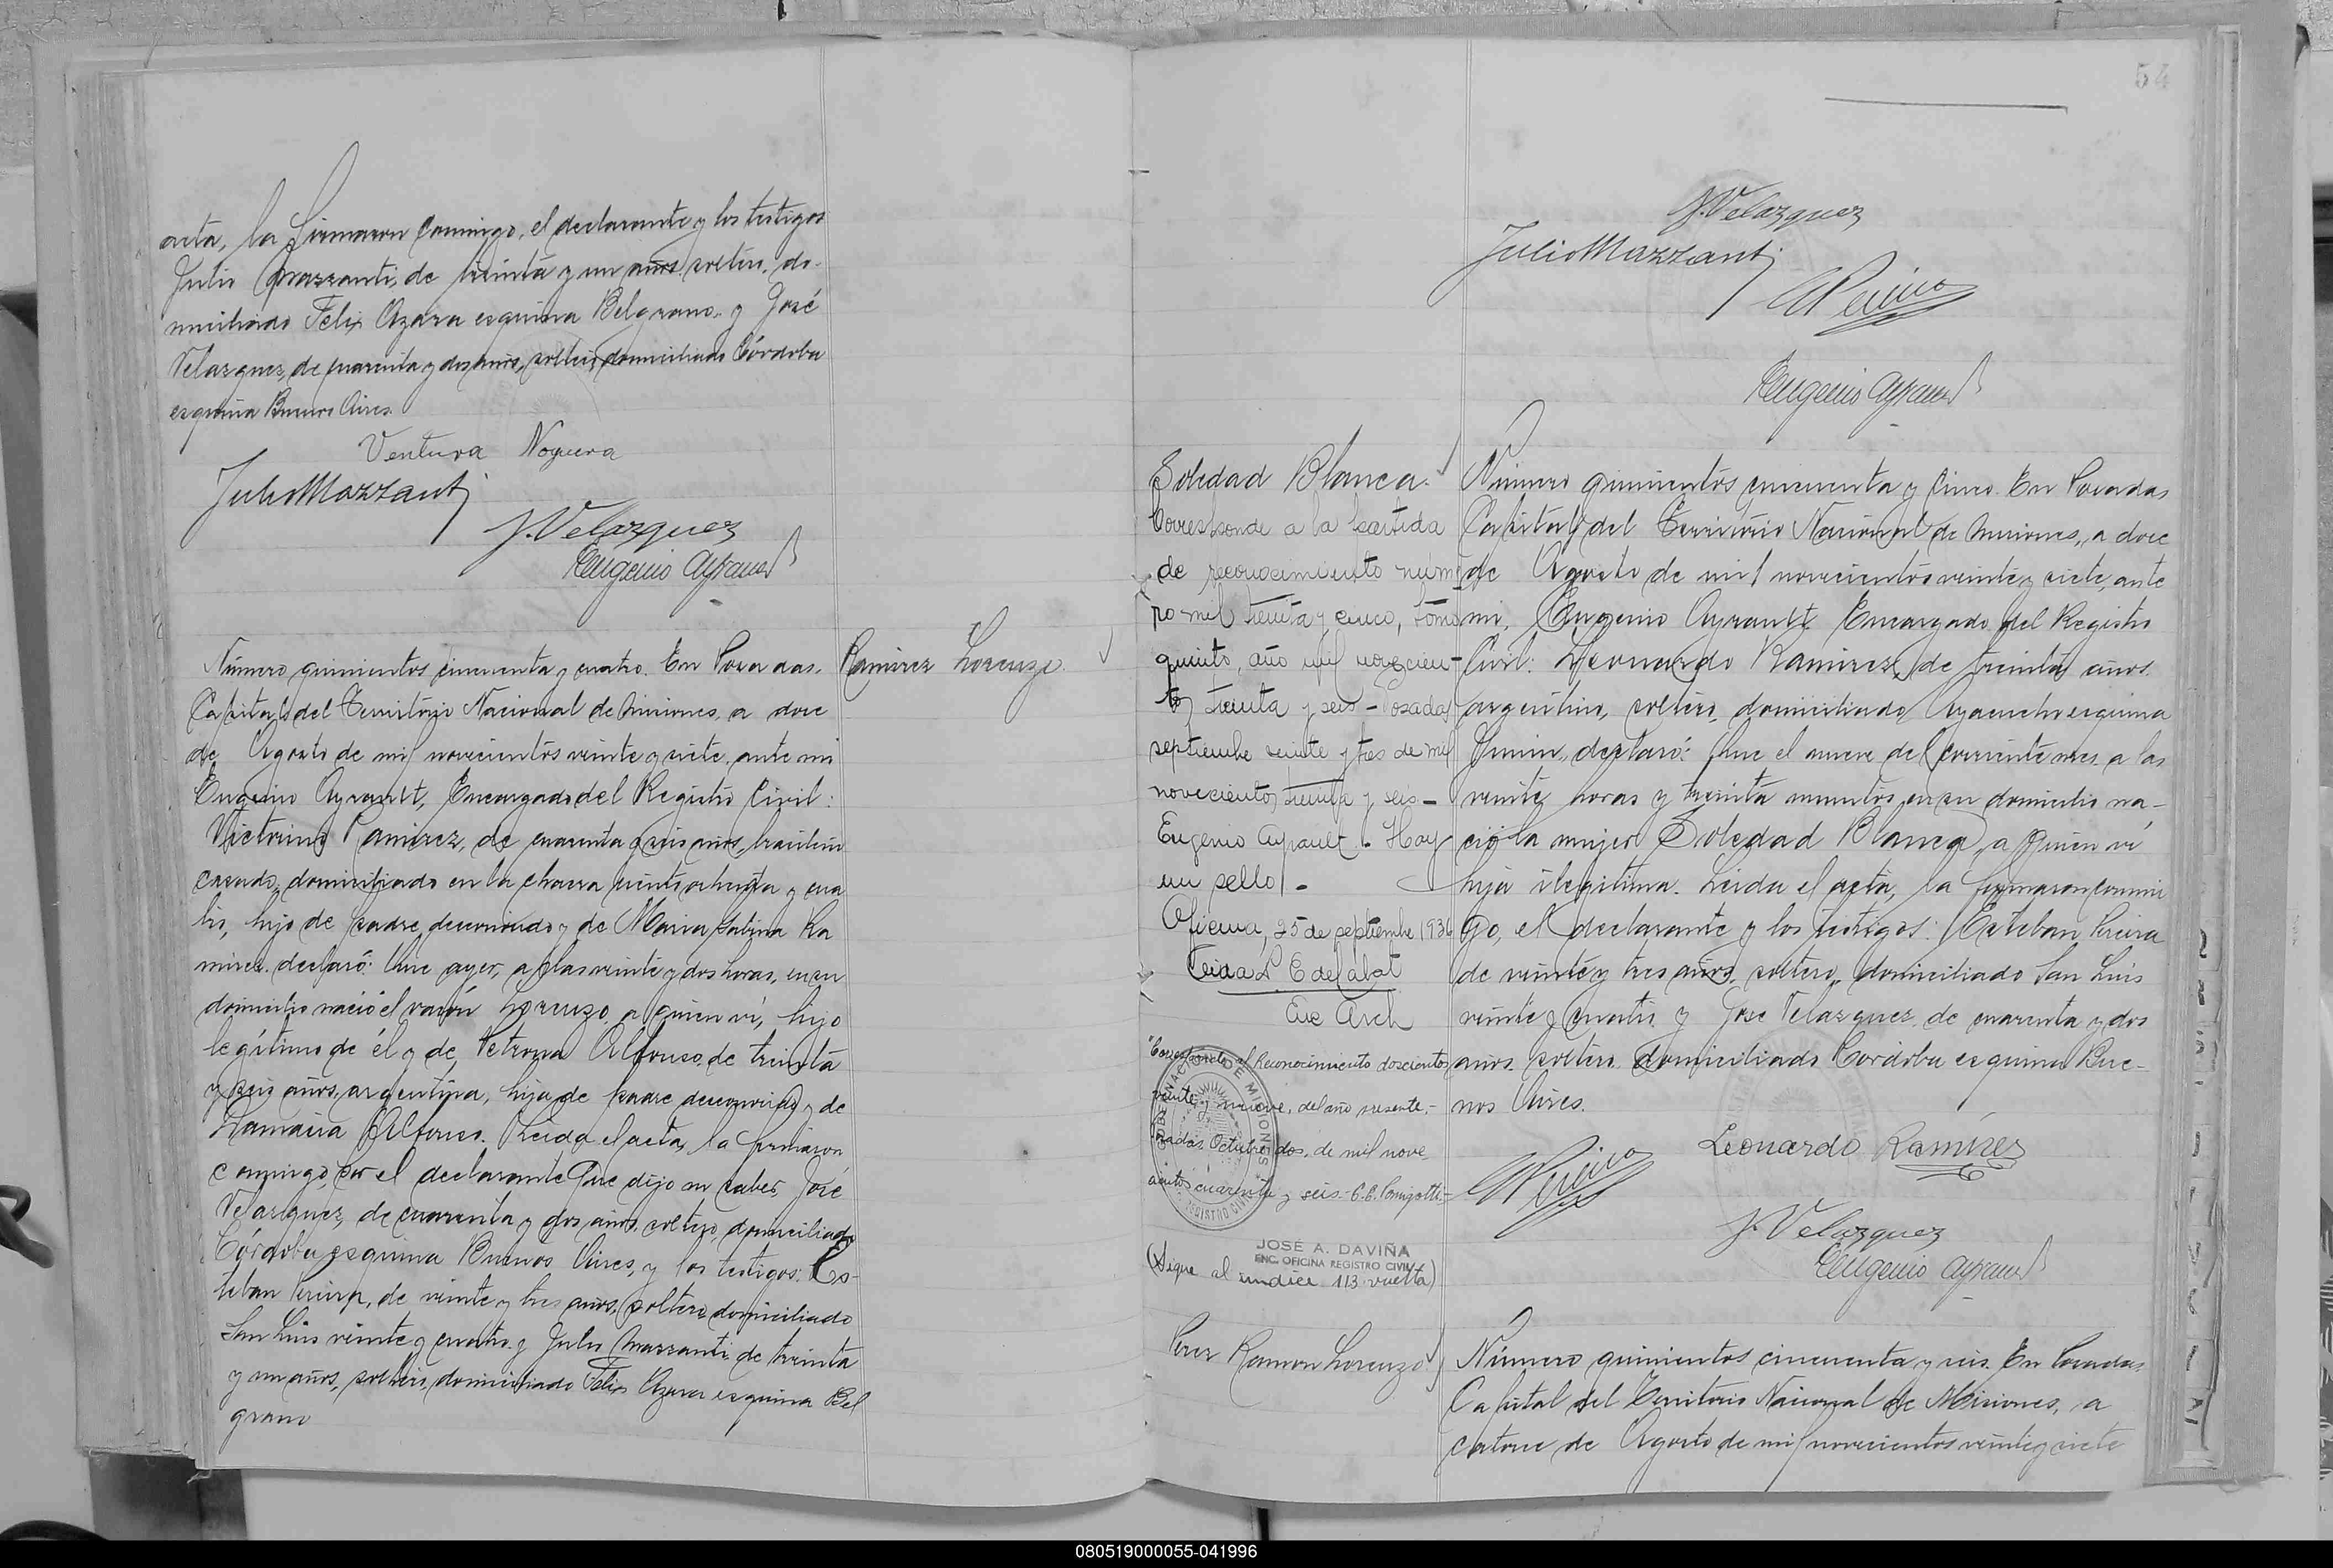 acta, la firmaron conmigo, el declarante y los testigos
Julio Mazzanti, de treinta y un años, soltero, do-
miciliado Felix Azara esquina Belgrano y José
Velazquez, de cuarenta y dos años, soltero, domiciliado Córdoba
esquina Buenos Aires.
Ventura Noguera
Julio Mazzanti
J. Velazquez
Eugenio Ayrault
Ramirez Lorenzo.
Número quinientos cincuenta y cuatro. En Posadas,
Capital del Territorio Nacional de Misiones, a doce
de Agosto de mil novecientos veinte y siete, ante mi
Eugenio Ayrault, Encargado del Registro Civil:
Victorino Ramirez, de cuarenta y seis años, brasilero
casado, domiciliado en la chacra ciento ochenta y cua
tro, hijo de padre desconocido y de Maria Sabina Ra
mirez, declaró: Que ayer, a las veinte y dos horas, en su
domicilio nació el varón Lorenzo, a quien vi, hijo
legítimo de él y de Petrona Alfonso, de treinta
y seis años, argentina, hija de padre desconocido y de
Damacia Alfonso. Leida el acta, la firmaron
conmigo, por el declarante que dijo no saber, José
Velazquez, de cuarenta y dos años, soltero, domiciliado
Córdoba esquina Buenos Aires, y los testigos: Es-
teban Pereira, de veinte y tres años, soltero domiciliado
San Luis veinte y cuatro y Julio Mazzanti de treinta
y un años, soltero, domiciliado Felix Azara esquina Bel
grano
54
J. Velazquez
Julio Mazzanti
E Pereira
Eugenio Ayrault
Soledad Blanca.
Corresponde a la partida
de reconocimiento núme
ro mil treinta y cinco, tomo
quinto, año mil novecien-
tos treinta y seis - Posadas
septiembre veinte y tres de mil
novecientos treinta y seis -
Eugenio Ayrault. Hay
un sello. -
Oficina, 25 de septiembre 1936
Enc Arch
"Corresponde al Reconocimiento doscientos
veinte y nueve, del año presente.-
sadas, Octubre dos, de mil nove
cientos cuarenta y seis-
GOBERNACION DE MISIONES
REGISTRO CIVIL
JOSÉ A. DAVIÑA
ENC. OFICINA REGISTRO CIVIL
(Sigue al indice 113 vuelta)
Número quinientos cincuenta y cinco. En Posadas
Capital del Territorio Nacional de Misiones, a doce
de Agosto de mil novecientos veinte y siete, ante
mi, Eugenio Ayrault Encargado del Registro
Civil: Leonardo Ramirez, de treinta años,
argentino, soltero, domiciliado Ayacucho esquina
Junin, declaró: Que el nueve del corriente mes, a las
veinte horas y treinta minutos, en su domicilio na-
ció la mujer Soledad Blanca, a quien vi
hija ilegitima. Leida el acta, la firmaron conmi
go, el declarante y los testigos: Esteban Pereira
de veinte y tres años, soltero, domiciliado San Luis
veinte y cuatro y José Velazquez de cuarenta y dos
años, soltero, domiciliado Córdoba esquina Bue-
nos Aires.
Leonardo Ramirez
E Pereira
J. Velazquez
Eugenio Ayrault
Perez Ramon Lorenzo
Número quinientos cincuenta y seis. En Posadas,
Capital del Territorio Nacional de Misiones, a
catorce de Agosto de mil novecientos veinte y siete
080519000055-041996